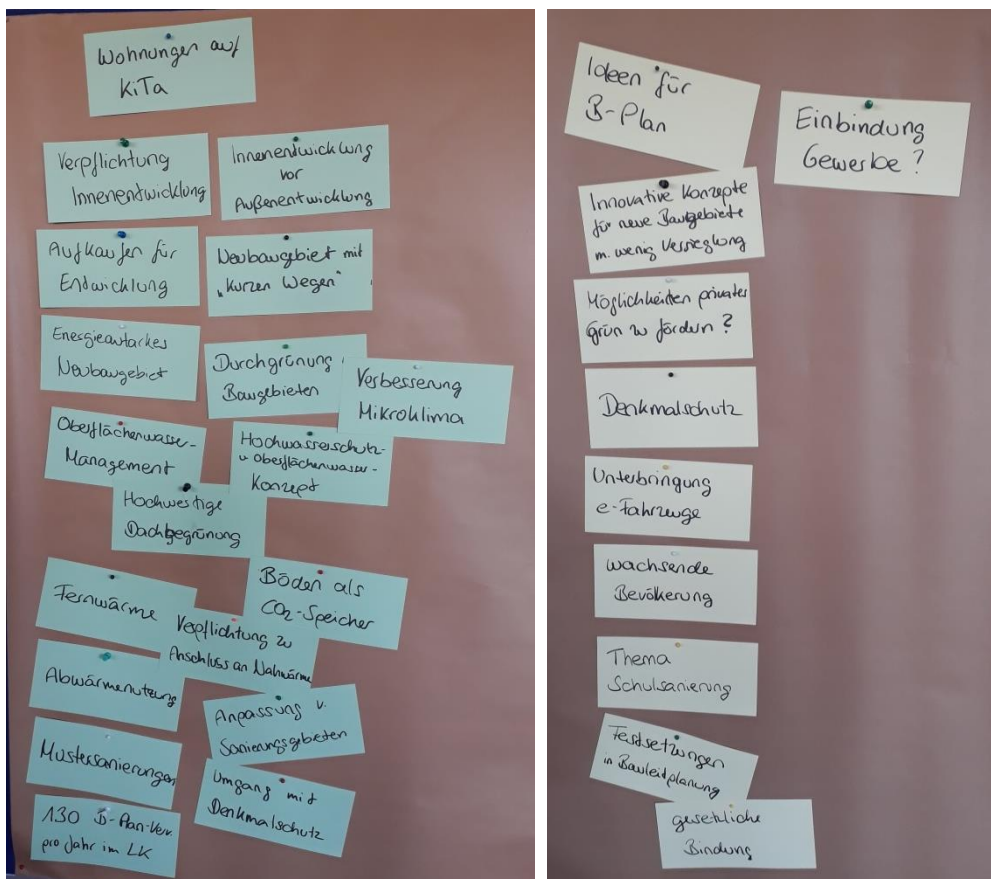 Wohnungen auf
KiTa
Verpflichtung
Innenentwicklung
Innenentwicklung
vor
Außenentwicklung
Aufkaufen für
Entwicklung
Neubaugebiet mit
„kurzen Wegen“
Energieautarkes
Neubaugebiet
Durchgrünung
Baugebieten
Verbesserung
Mikroklima
Oberflächenwasser-
Management
Hochwasserschutz-
u Oberflächenwasser-
Konzept
Hochwertige
Dachbegrünung
Fernwärme
Böden als
CO2-Speicher
Verpflichtung zu
Anschluss an Nahwärme
Abwärmenutzung
Anpassung v.
Sanierungsgebieten
Mustersanierungen
Umgang mit
Denkmalschutz
130 B-Plan-Verf.
pro Jahr im LK
Ideen für
B-Plan
Einbindung
Gewerbe?
Innovative Konzepte
für neue Baugebiete
m. wenig Versieglung
Möglichkeiten privates
Grün zu fördern?
Denkmalschutz
Unterbringung
e-Fahrzeuge
wachsende
Bevölkerung
Thema
Schulsanierung
Festsetzungen
in Bauleitplanung
gesetzliche
Bindung